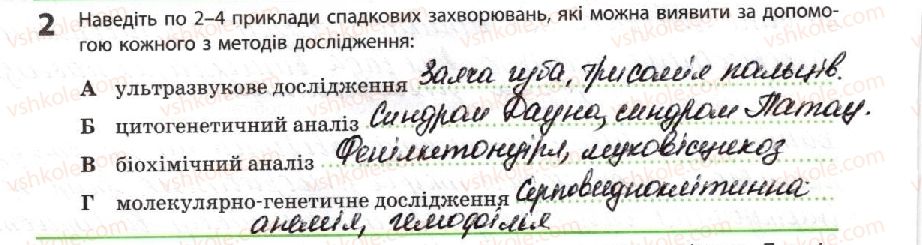 2 Наведіть по 2–4 приклади спадкових захворювань, які можна виявити за допомо-
гою кожного з методів дослідження:
А ультразвукове дослідження Заяча губа, трисомія пальців.
Б цитогенетичний аналіз Синдром Дауна, синдром Патау.
В біохімічний аналіз Фенілкетонурія, муковісцидоз
Г молекулярно-генетичне дослідження Серповидноклітинна
анемія, гемофілія